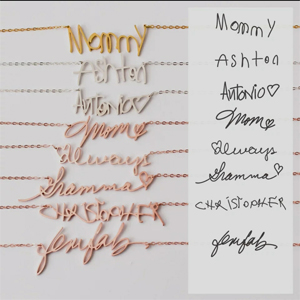 Mommy
Ashton
Antonio♡
Mom
always
Gramma♡
CHRiSTOPHER
Mommy
Ashton
Antonio♡
Mom
always
Gramma♡
CHRiSTOPHER